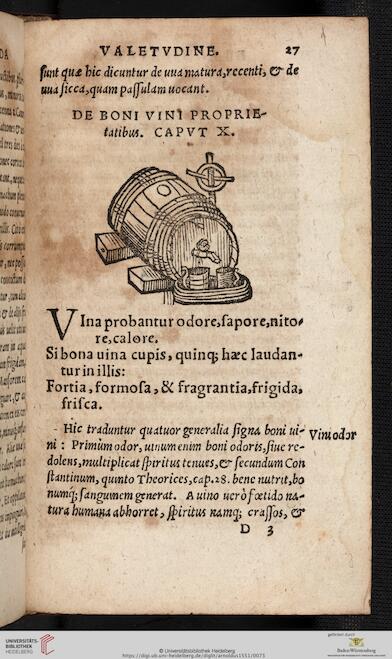 VALETVDINE. 27
sunt quæ hic dicuntur de uua matura, recenti, & de
uua sicca, quam passulam uocant.
DE BONI VINI PROPRIE-
tatibus. CAPVT X.
VIna probantur odore, sapore, nito-
re, calore.
Si bona uina cupis, quinq; hæc laudan-
tur in illis:
Fortia, formosa, & fragrantia, frigida,
frisca.
Hic traduntur quatuor generalia signa boni ui-
ni: Primùm odor, uinum enim boni odoris, siue re-
dolens, multiplicat spiritus tenues, & secundum Con
stantinum, quinto Theorices, cap. 28. bene nutrit, bo
numq; sanguinem generat. A uino uerò fœtido na-
tura humana abhorret, spiritus namq; crassos, &
Vini odor
D 3
UNIVERSITÄTS-
BIBLIOTHEK
HEIDELBERG
© Universitätsbibliothek Heidelberg
https://digi.ub.uni-heidelberg.de/diglit/arnoldus1551/0073
gefördert durch
Baden-Württemberg